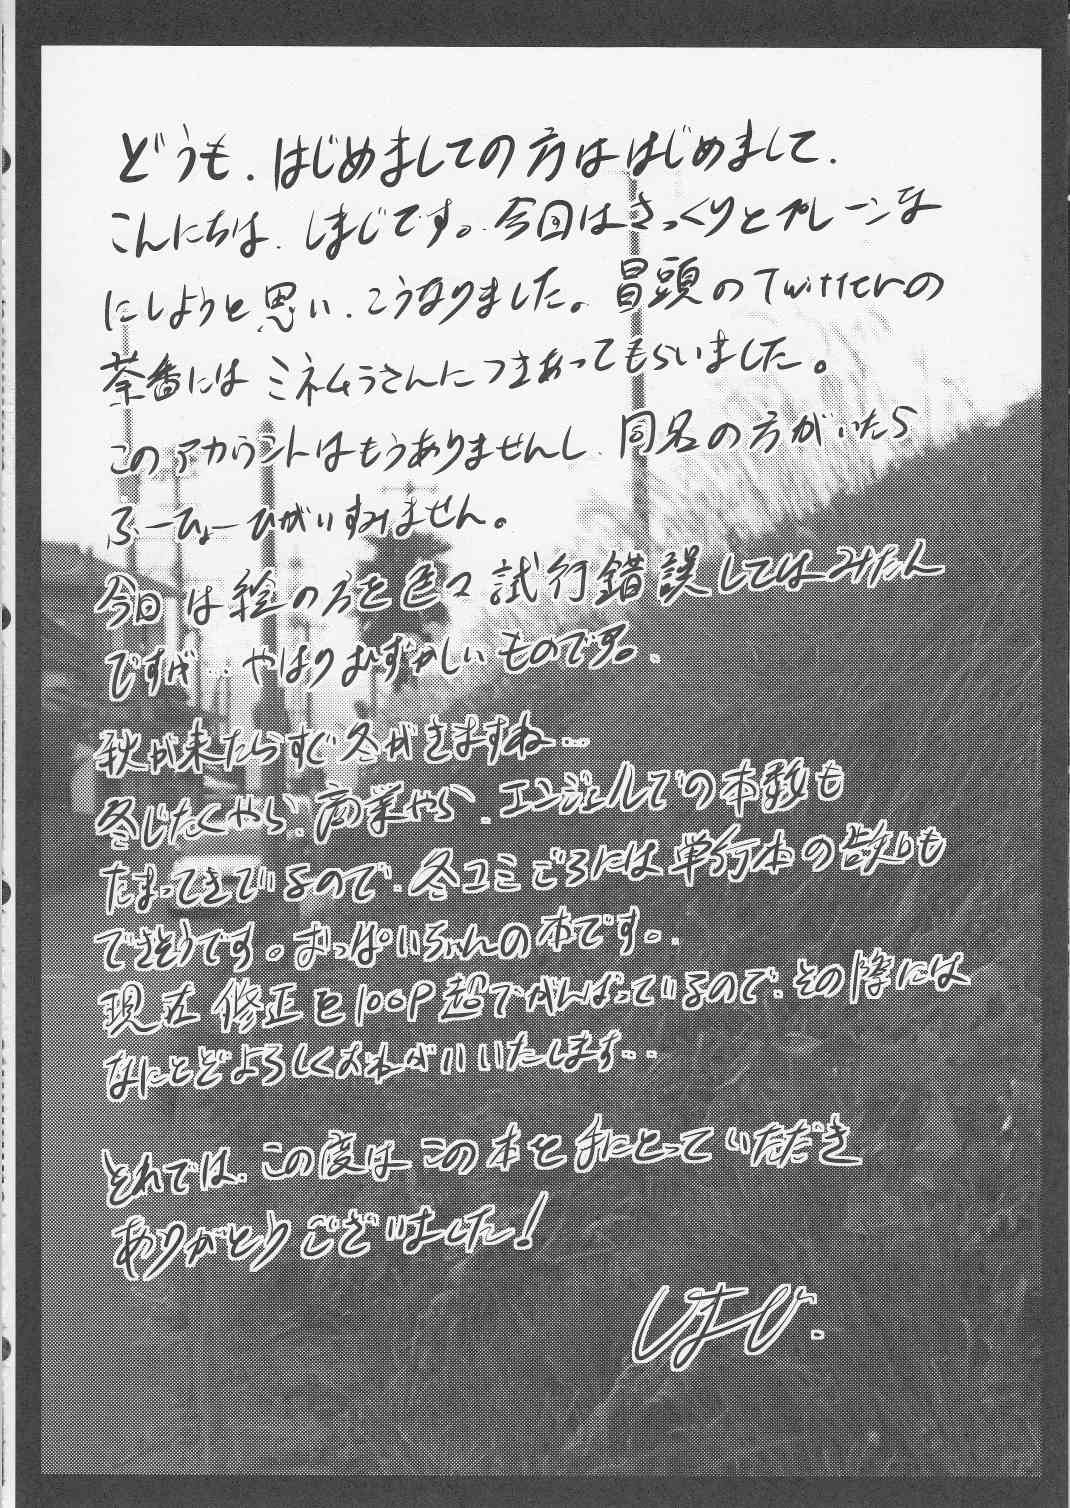 どうも、はじめましての方ははじめまして、
こんにちは、しまじです。今回はさっくりとプレーンな
にしようと思い、こうなりました。冒頭のTwitterの
茶番にはミネムラさんにつきあってもらいました。
このアカウントはもうありませんし、同名の方がいたら
ふーひょーひがいすみません。
今回は絵の方を色々試行錯誤してはみたん
ですが…やはりむずかしいものです。
秋が来たらすぐ冬がきますね…
冬じたくやら、商業やら、エンジェルでの本数も
たまってきているので、冬コミごろには単行本の告知も
できそうです。おっぱいちゃんの本です。
現在修正を100P超でがんばっているので、その際には
なにとぞよろしくおねがいいたします…
それでは、この度はこの本を手にとっていただき
ありがとうございました!